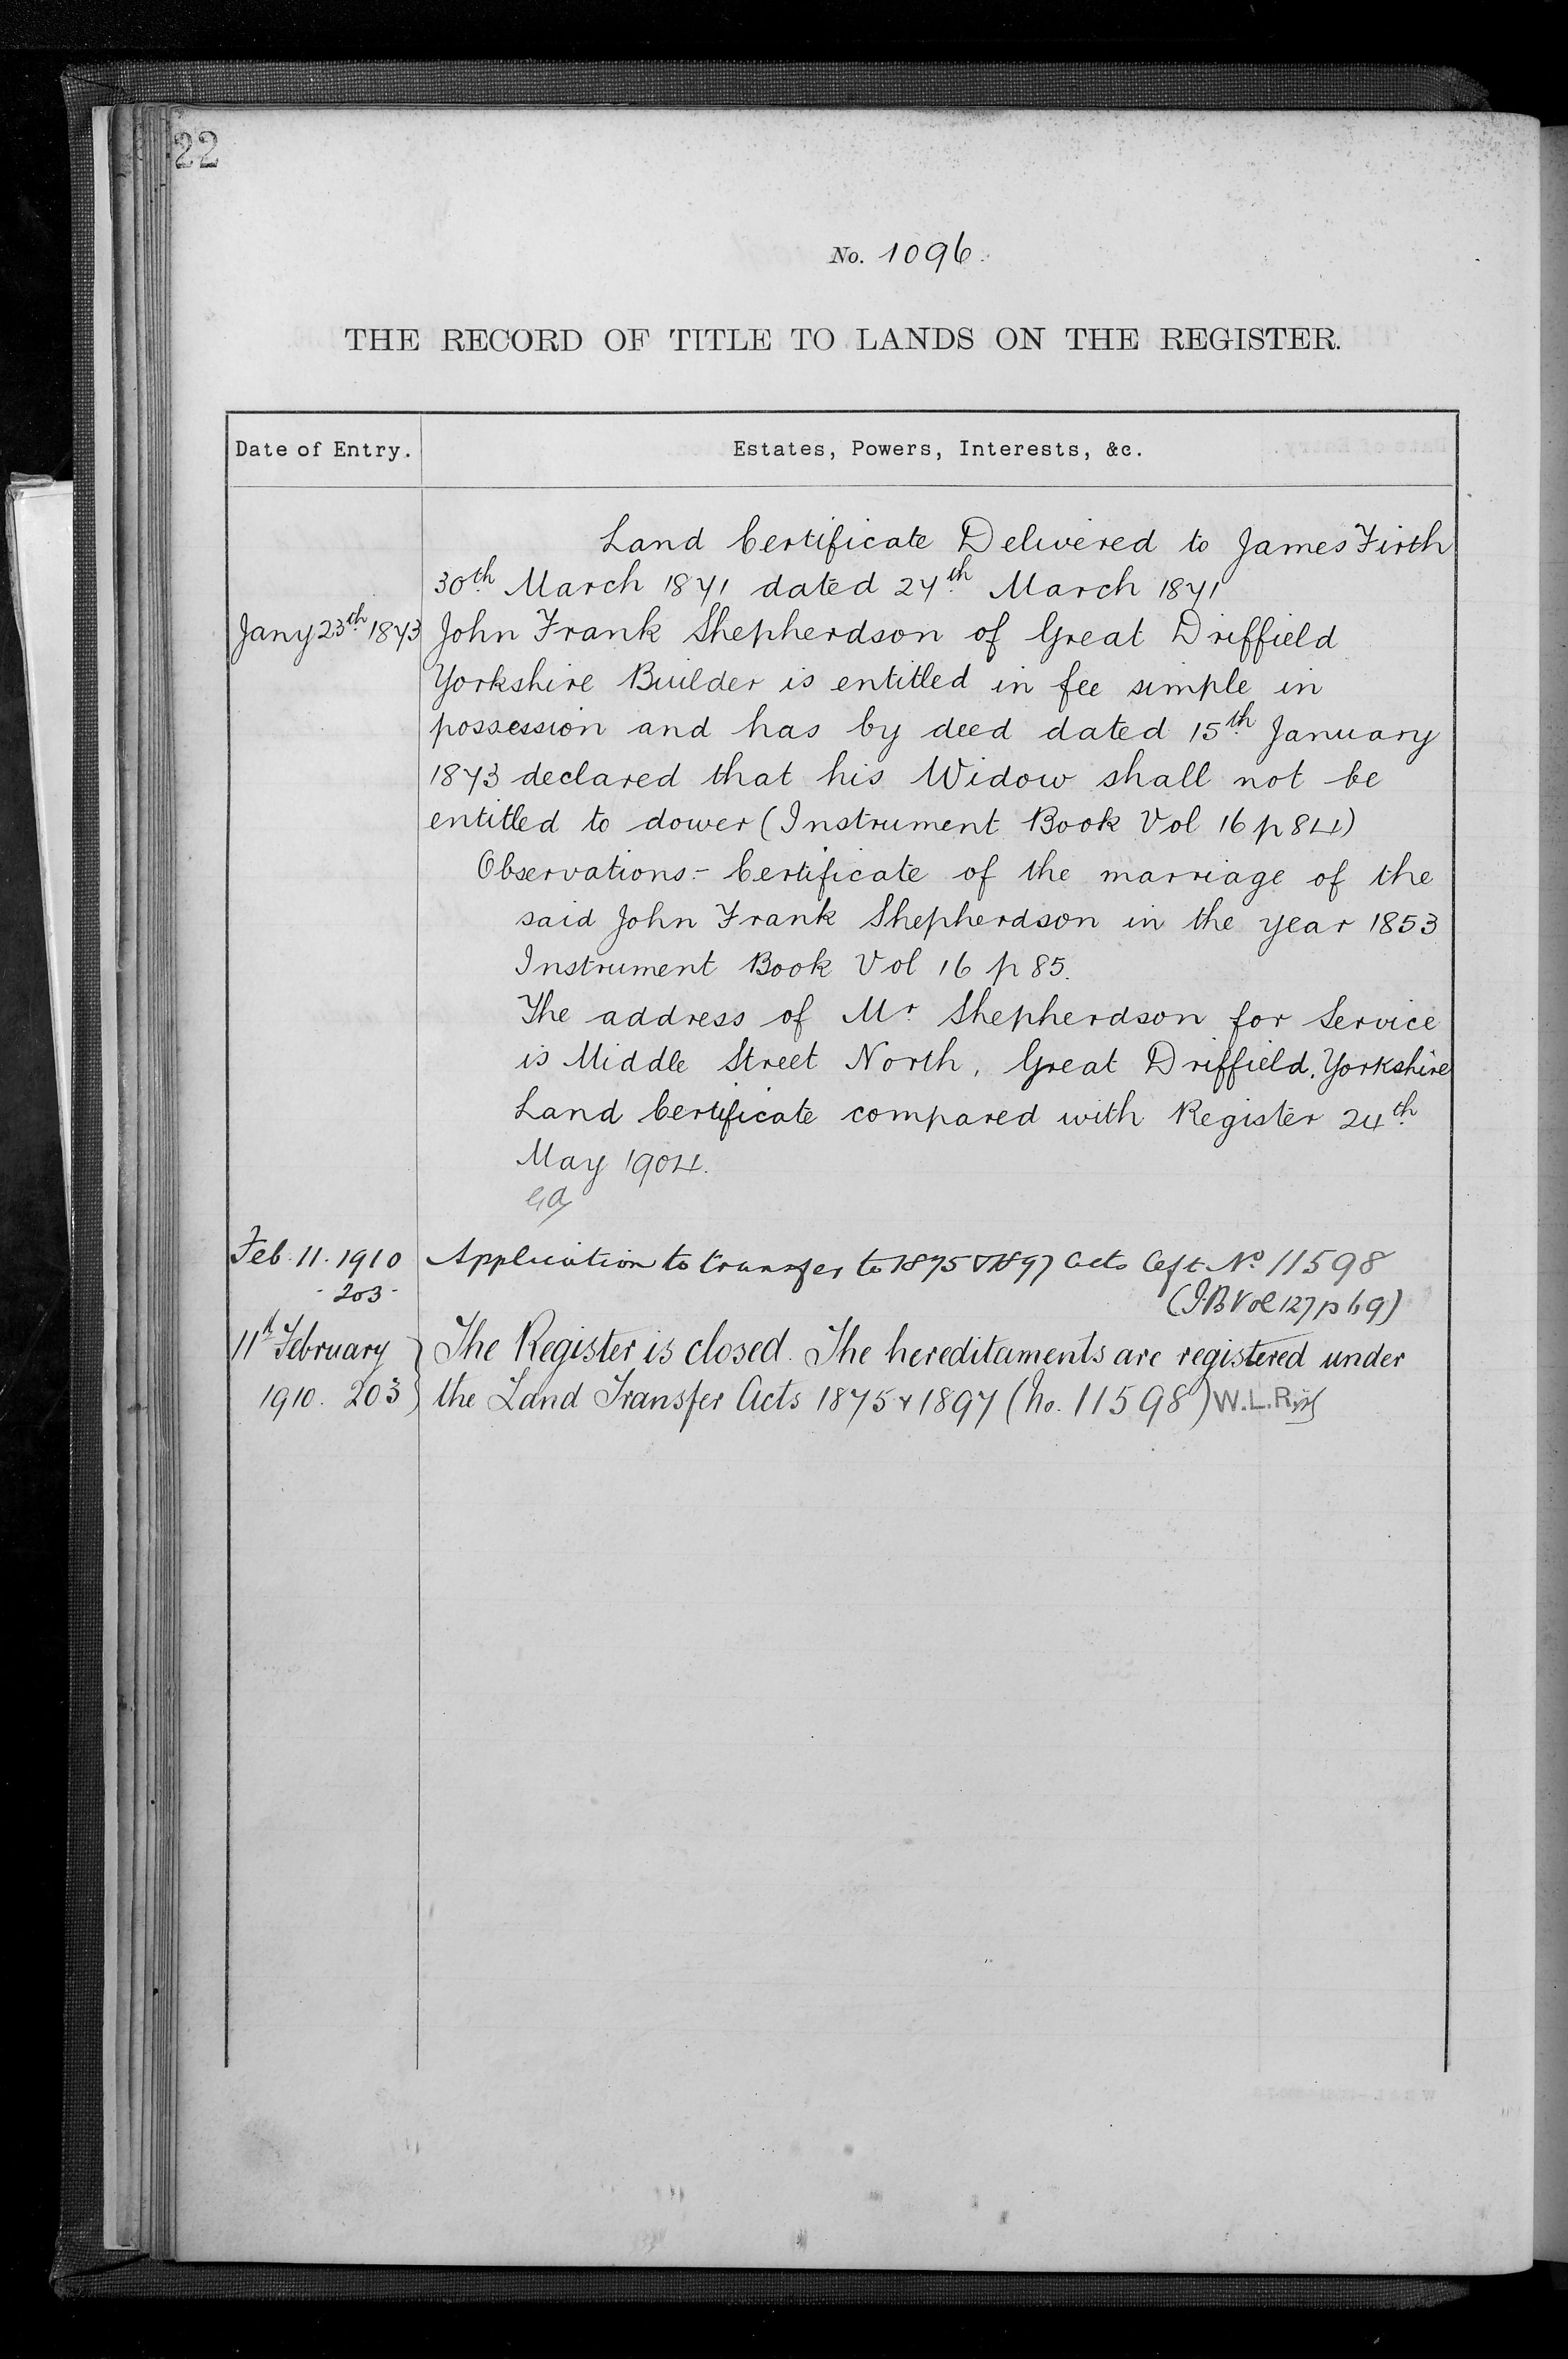 22
No. 1096.
THE RECORD OF TITLE TO LANDS ON THE REGISTER.
Date of Entry.
Estates, Powers, Interests, &c.
Land Certificate Delivered to James Firth
30th March 1871 dated 24th March 1871
Jany 23th 1873 John Frank Shepherdson of Great Driffield
Yorkshire Builder is entitled in fee simple in
possession and has by deed dated 15th January
1873 declared that his Widow shall not be
entitled to dower (Instrument Book Vol 16 p 84)
Observations:- Certificate of the marriage of the
said John Frank Shepherdson in the year 1853
Instrument Book Vol 16 p 85.
The address of Mr Shepherdson for Service
is Middle Street North, Great Driffield, Yorkshire
Land Certificate compared with Register 24th
May 1904.
Feb. 11. 1910 Application to transfer to 1875 & 1897 Acts Ceft. No 11598
- 203 - (I.B Vol 127 p 69)
11th February } The Register is closed. The hereditaments are registered under
1910. 203 } the Land Transfer Acts 1875 & 1897 (No. 11598) W.L.R.